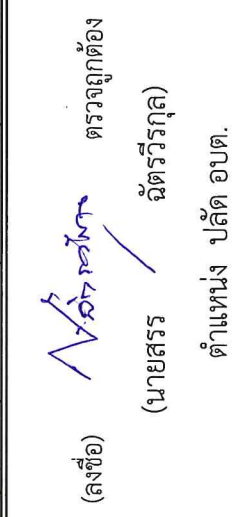 (ลงชื่อ) ตรวจถูกต้อง
(นายสรร ฉัตรวีรกุล)
ตำแหน่ง ปลัด อบต.